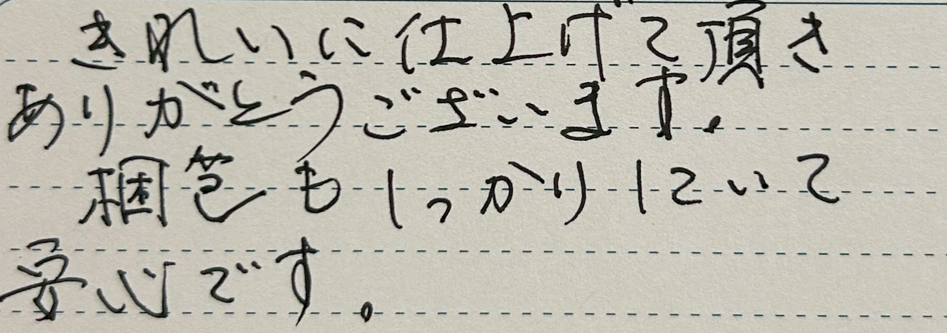 きれいに仕上げて頂き
ありがとうございます。
梱包もしっかりしていて
安心です。